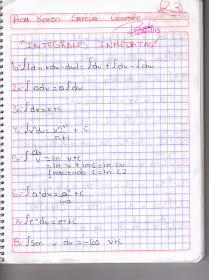 Ana Karen García
23
"INTEGRALES INMEDIATAS"
1.-∫(du+dv-dw)=∫du+∫dv-∫dw
2.-∫adv=a∫dv
3.-∫dx=x+c
4.-∫vⁿdv=vⁿ⁺¹/n+1 + C
5.-∫dv/v = ln v+c
= ln v + ln c = ln cv
[haciendo c = ln c]
6.-∫aᵛdv=aᵛ/ln a + c
7.-∫eᵛdv=eᵛ+c
8.-∫sen v dv=-cos v+c